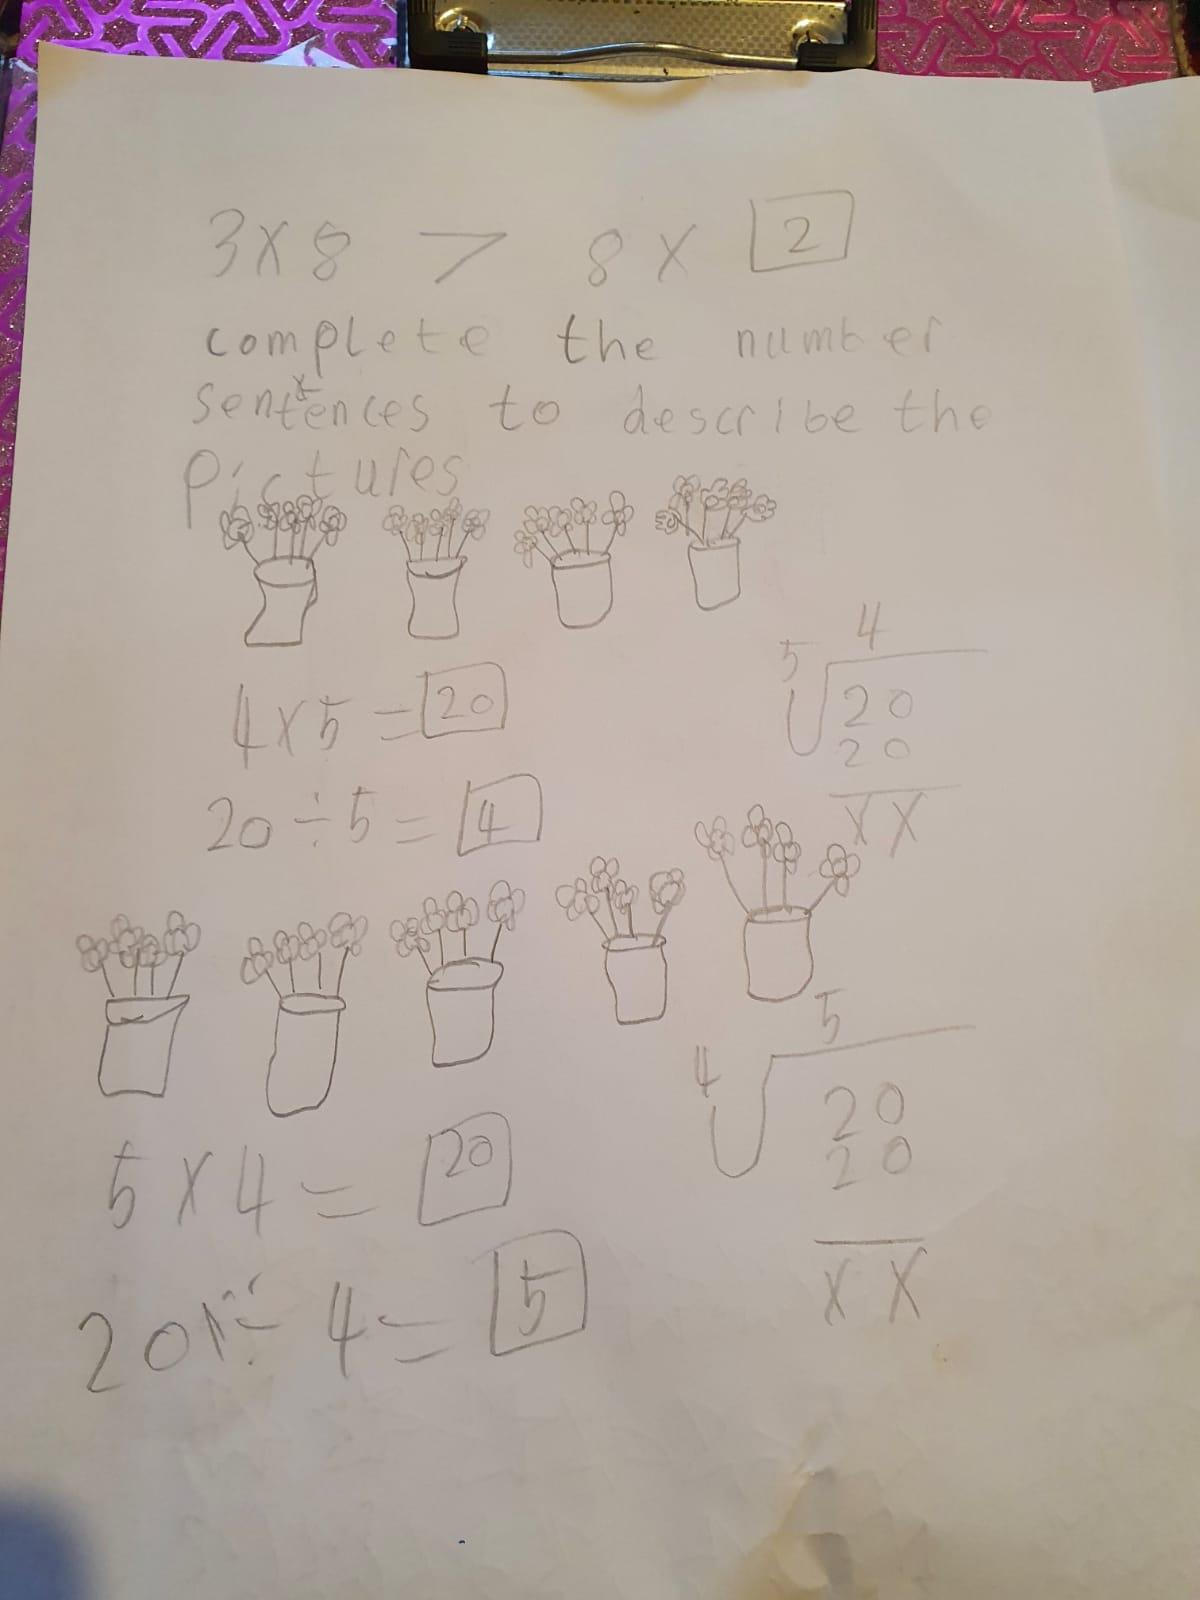 3 x 8 > 8 x 2
complete the number
sentences to describe the
Pictures
4 x 5 = 20
20 ÷ 5 = 4
4
5 20
20
x x
5 x 4 = 20
20 ÷ 4 = 5
5
4 20
20
x x